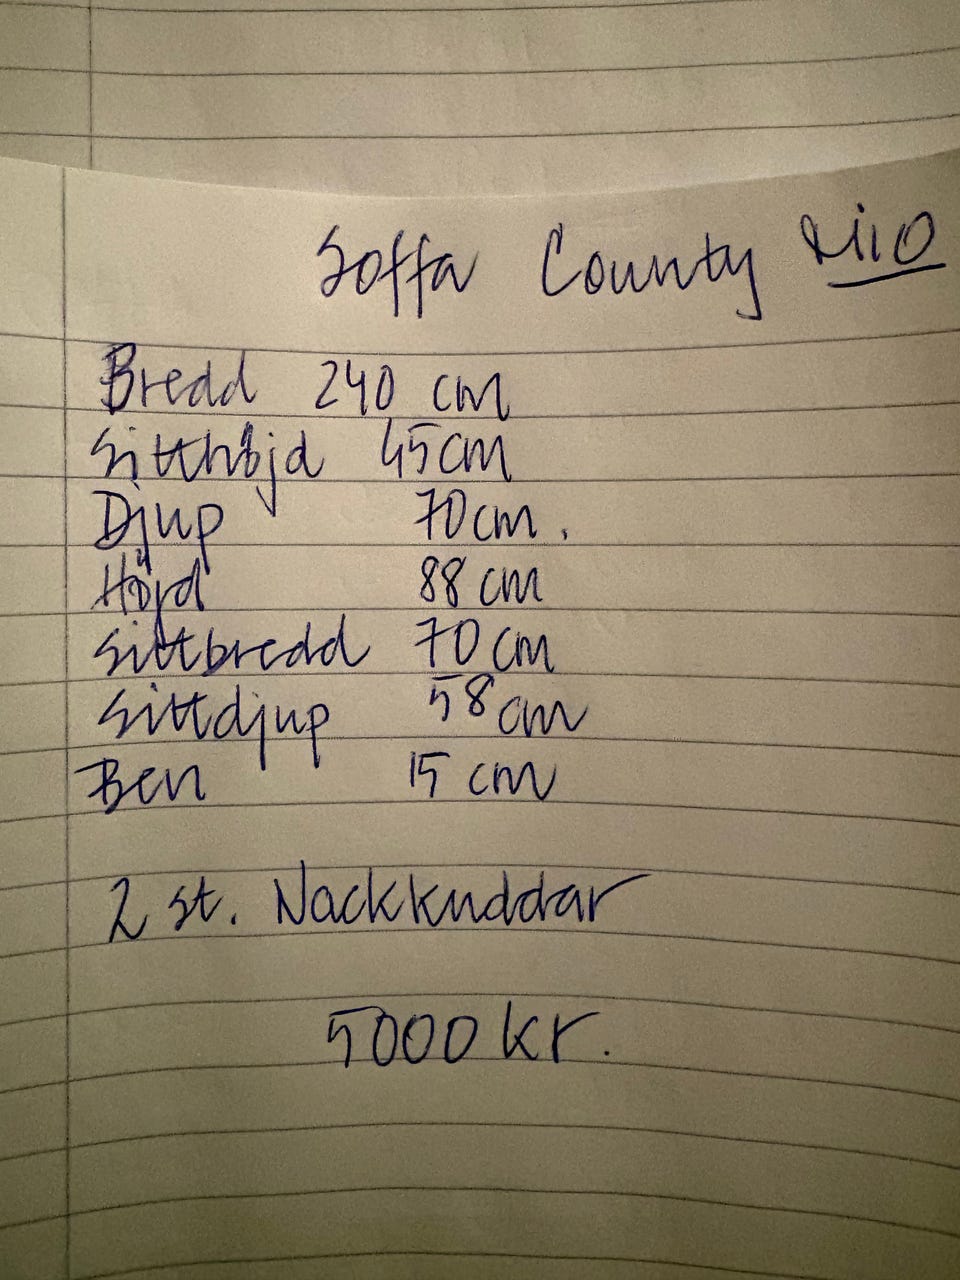 Soffa County Mio
Bredd 240 cm
Sitthöjd 45cm
Djup 70cm.
Höjd 88 cm
Sittbredd 70 cm
Sittdjup 58 cm
Ben 15 cm
2 st. Nackkuddar
5000 kr.